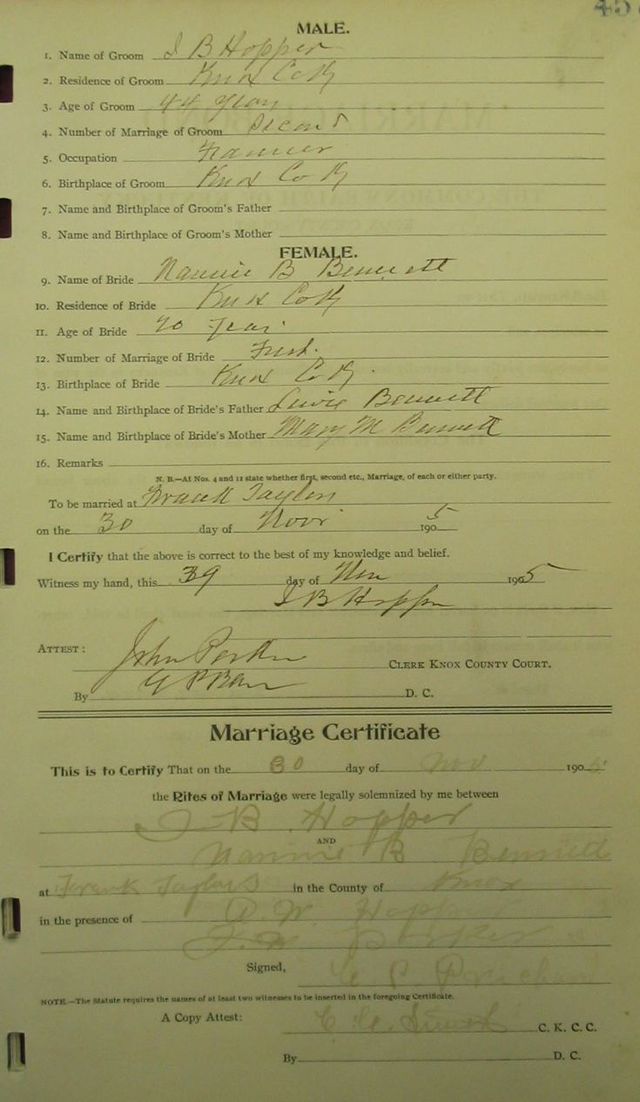 45
MALE.
1. Name of Groom J B Hopper
2. Residence of Groom Knox Co Ky
3. Age of Groom 44 Years
4. Number of Marriage of Groom Second
5. Occupation Farmer
6. Birthplace of Groom Knox Co Ky
7. Name and Birthplace of Groom's Father
8. Name and Birthplace of Groom's Mother
FEMALE.
9. Name of Bride Nannie B Bennett
10. Residence of Bride Knox Co Ky
11. Age of Bride 20 Years
12. Number of Marriage of Bride First.
13. Birthplace of Bride Knox Co Ky.
14. Name and Birthplace of Bride's Father Lewis Bennett
15. Name and Birthplace of Bride's Mother Mary M Bennett
16. Remarks
N. B.—At Nos. 4 and 12 state whether first, second etc., Marriage, of each or either party.
To be married at Frank Taylors
on the 30 day of Nov 1905
I Certify that the above is correct to the best of my knowledge and belief.
Witness my hand, this 29 day of Nov 1905
J B Hopper
ATTEST: John Parker CLERK KNOX COUNTY COURT.
By D. C.
Marriage Certificate
This is to Certify That on the 30 day of Nov 1905
the Rites of Marriage were legally solemnized by me between
J B Hopper
AND
Nannie B Bennett
at Frank Taylors in the County of Knox
in the presence of W. Hopper
Parker
Signed,
NOTE.—The Statute requires the names of at least two witnesses to be inserted in the foregoing Certificate.
A Copy Attest: C. K. C. C.
By D. C.